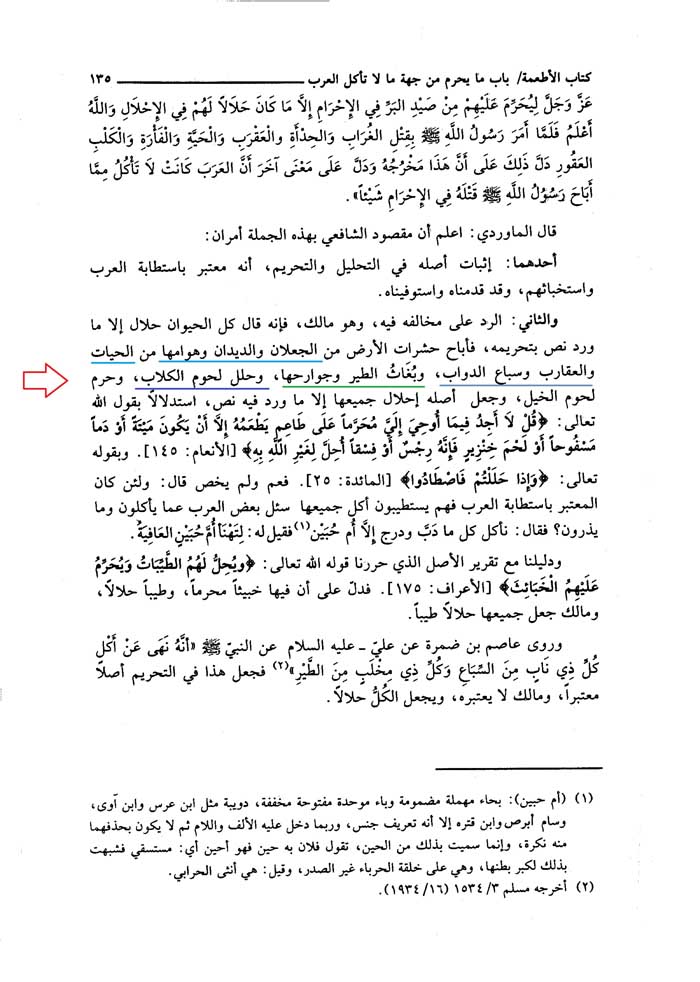 كتاب الأطعمة/ باب ما يحرم من جهة ما لا تأكل العرب ١٣٥
عَزَّ وَجَلَّ لِيُحَرِّمَ عَلَيْهِمْ مِنْ صَيْدِ البَرِّ فِي الإِحْرَامِ إِلاَّ مَا كَانَ حَلاَلاً لَهُمْ فِي الإِحْلاَلِ وَاللَّهُ
أَعْلَمُ فَلَمَّا أَمَرَ رَسُولُ اللَّهِ ﷺ بِقَتْلِ الغُرَابِ وَالحِدْأَةِ وَالعَقْرَبِ وَالحَيَّةِ وَالْفَأْرَةِ وَالْكَلْبِ
العَقُورِ دَلَّ ذَلِكَ عَلَى أَنَّ هَذَا مَخْرَجُهُ وَدَلَّ عَلَى مَعْنَى آخَرَ أَنَّ العَرَبَ كَانَتْ لاَ تَأْكُلُ مِمَّا
أَبَاحَ رَسُوُلُ اللَّهِ ﷺ قَتْلَهُ فِي الإِحْرَامِ شَيْئاً».
قال الماوردي: اعلم أن مقصود الشافعي بهذه الجملة أمران:
أحدهما: إثبات أصله في التحليل والتحريم، أنه معتبر باستطابة العرب
واستخبائهم، وقد قدمناه واستوفيناه.
والثاني: الرد على مخالفه فيه، وهو مالك، فإنه قال كل الحيوان حلال إلا ما
ورد نص بتحريمه، فأباح حشرات الأرض من الجعلان والديدان وهوامها من الحيات
والعقارب وسباع الدواب، وبُغَاثُ الطير وجوارحها، وحلل لحوم الكلاب، وحرم
لحوم الخيل، وجعل أصله إحلال جميعها إلا ما ورد فيه نص، استدلالاً بقول الله
تعالى: ﴿قُلْ لاَ أَجِدُ فِيمَا أُوحِيَ إِلَيَّ مُحَرَّماً عَلَى طَاعِمٍ يَطْعَمُهُ إِلاَّ أَنْ يَكُونَ مَيْتَةً أَوْ دَماً
مَسْفُوحاً أَوْ لَحْمَ خِنْزِيرٍ فَإِنَّهُ رِجْسٌ أَوْ فِسْقاً أُحِلَّ لِغَيْرِ اللَّهِ بِهِ﴾ [الأنعام: ١٤٥]. وبقوله
تعالى: ﴿وَإِذا حَلَلْتُمْ فَاصْطَادُوا﴾ [المائدة: ٢٥]. فعم ولم يخص قال: ولئن كان
المعتبر باستطابة العرب فهم يستطيبون أكل جميعها سئل بعض العرب عما يأكلون وما
يذرون؟ فقال: نأكل كل ما دَبَّ ودرج إلاَّ أُم حُبَيْن(١) فقيل له: لِتَهْنَأُ أُمُّ حُبَيْنٍ العَافِيَةُ.
ودليلنا مع تقرير الأصل الذي حررنا قوله الله تعالى: ﴿ويُحِلُّ لَهُمُ الطَّيِّبَاتُ وَيُحَرِّمُ
عَلَيْهِمُ الْخَبَائِثَ﴾ [الأعراف: ١٧٥]. فدلّ على أن فيها خبيثاً محرماً، وطيباً حلالاً،
ومالك جعل جميعها حلالاً طيباً.
وروى عاصم بن ضمرة عن عليّ ـ عليه السلام عن النبيّ ﷺ «أَنَّهُ نَهَى عَنْ أَكْلِ
كُلِّ ذِي نَابٍ مِنَ السِّبَاعِ وَكُلِّ ذِي مِخْلَبٍ مِنَ الطَّيْرِ»(٢) فجعل هذا في التحريم أصلاً
معتبراً، ومالك لا يعتبره، ويجعل الكُلُّ حلالاً.
(١) (أم حبين): بحاء مهملة مضمومة وباء موحدة مفتوحة مخففة، دويبة مثل ابن عرس وابن آوى،
وسام أبرص وابن قتره إلا أنه تعريف جنس، وربما دخل عليه الألف واللام ثم لا يكون بحذفهما
منه نكرة، وإنما سميت بذلك من الحين، تقول فلان به حين فهو أحين أي: مستسقي فشبهت
بذلك لكبر بطنها، وهي على خلقة الحرباء غير الصدر، وقيل: هي أنثى الحرابي.
(٢) أخرجه مسلم ٣/ ١٥٣٤ (١٦/ ١٩٣٤).